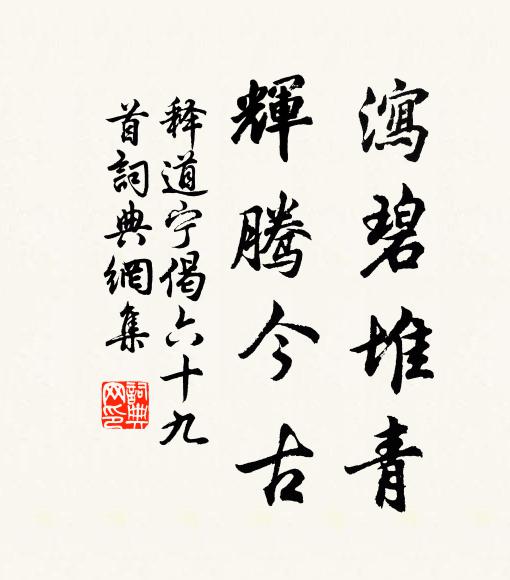 瀉碧堆青
輝騰今古
释道宁偈六十九
首詞典網集
詞典
网印